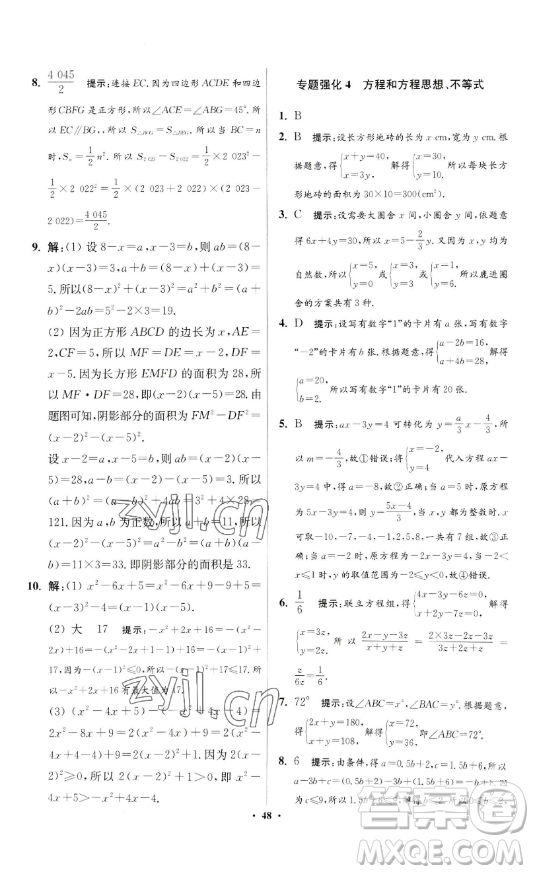 8. 4 045/2 提示:连接 EC. 因为四边形 ACDE 和四边
形 CBFG 是正方形,所以∠ACE=∠ABG=45°. 所
以 EC∥BG, 所以 S△BCG=S△BEG. 所以当 BC=n
时, Sₙ=1/2n². 所以 S₂₀₂₃-S₂₀₂₂=1/2×2 023²-
1/2×2 022²=1/2×(2 023+2 022)×(2 023-
2 022)=4 045/2.
9. 解:(1) 设 8-x=a,x-3=b,则(8-
x)(x-3)=ab=3,a+b=(8-x)+(x-
3)=5. 所以(8-x)²+(x-3)²=a²+b²=(a+
b)²-2ab=5²-2×3=19.
(2) 因为正方形 ABCD 的边长为 x,AE=
2,CF=5,所以 MF=DE=x-2,DF=
x-5. 因为长方形 EMFD 的面积为 28,所
以 MF·DF=28,即(x-2)(x-5)=28. 由
题图可知,阴影部分的面积为 FM²-DF²=
(x-2)²-(x-5)².
设 x-2=a,x-5=b,则(x-2)(x-
5)=28,a-b=(x-2)-(x-5)=3. 所以
(a+b)²=(a-b)²+4ab=3²+4×28=
121. 因为 a、b 为正数,所以 a+b=11,所以
(x-2)²-(x-5)²=a²-b²=(a+b)(a-
b)=11×3=33,即阴影部分的面积是 33.
10. 解:(1) x²-6x+5=x²-6x+9-9+5=
(x-3)²-4.
(2) 大 17 提示:-x²+2x+16=-(x²-
2x)+16=-(x²-2x+1-1)+16=-(x-1)²+
17,因为(x-1)²≥0,所以-(x-1)²≤0,所以-(x-1)²+
17≤17. 所以-x²+2x+16 有最大值为 17.
(3) (x²-4x+5)-(-x²+4x-4)=
2x²-8x+9=2(x²-4x)+9=2(x²-
4x+4-4)+9=2(x-2)²+1. 因为 2(x-
2)²≥0,所以 2(x-2)²+1>0. 所以 x²-
4x+5>-x²+4x-4.
专题强化 4 方程和方程思想、不等式
1. B
2. B 提示:设长方形地砖的长为 x cm,宽为 y cm. 根
据题意,得{x+y=40, x+3y=2x. 解得{x=30, y=10. 所以每块长方
形地砖的面积为 30×10=300(cm²).
3. C 提示:设需要大圈舍 x 间,小圈舍 y 间. 根据题意,
得 6x+4y=30,所以 x=5-2/3y. 又因为 x、y 均为
自然数,所以{x=5, y=0 或{x=3, y=3 或{x=1, y=6. 所以鹿进圈
舍的方案共有 3 种.
4. D 提示:设写有数字“1”的卡片有 a 张,写有数字
“-2”的卡片有 b 张. 根据题意,得{a-2b=16, a+4b=28. 解得
{a=20, b=2. 所以写有数字“1”的卡片有 20 张.
5. B 提示:ax-3y=4 可转化为 y=a/3x-4/3,所
以 m=-4/3,故①错误;将{x=-2, y=4 代入方程 ax-
3y=4,得 a=-8,故②正确;当 a=5 时,原方程
为 y=(5x-4)/3,当-10≤x≤10,x、y 都为整数时,x 可
取-10,-7,-4,-1,2,5,8,一共有 7 组. 故③正
确;当 a=-2 时,原方程为-2x-3y=4,当-8≤x≤
1 时,y 的取值范围为-2≤y≤4,故④错误.
6. 1/6 提示:联立方程组,得{4x-3y-6z=0, x-3y+3z=0. 解得
{x=3z, y=2z. 所以 (2x-y-3z)/(x-y+5z)=(2×3z-2z-3z)/(3z-2z+5z)=
z/6z=1/6.
7. 72° 提示:设∠ABC=x°,∠BAC=y°,根据题意,
得{2x+y=180, x+2y=108. 解得{x=72, y=36. 即∠ABC=72°.
8. 6 提示:由条件,得 a=0.5b+2,c=1.5b+6,所以
48
zyjl.cn
答案圈